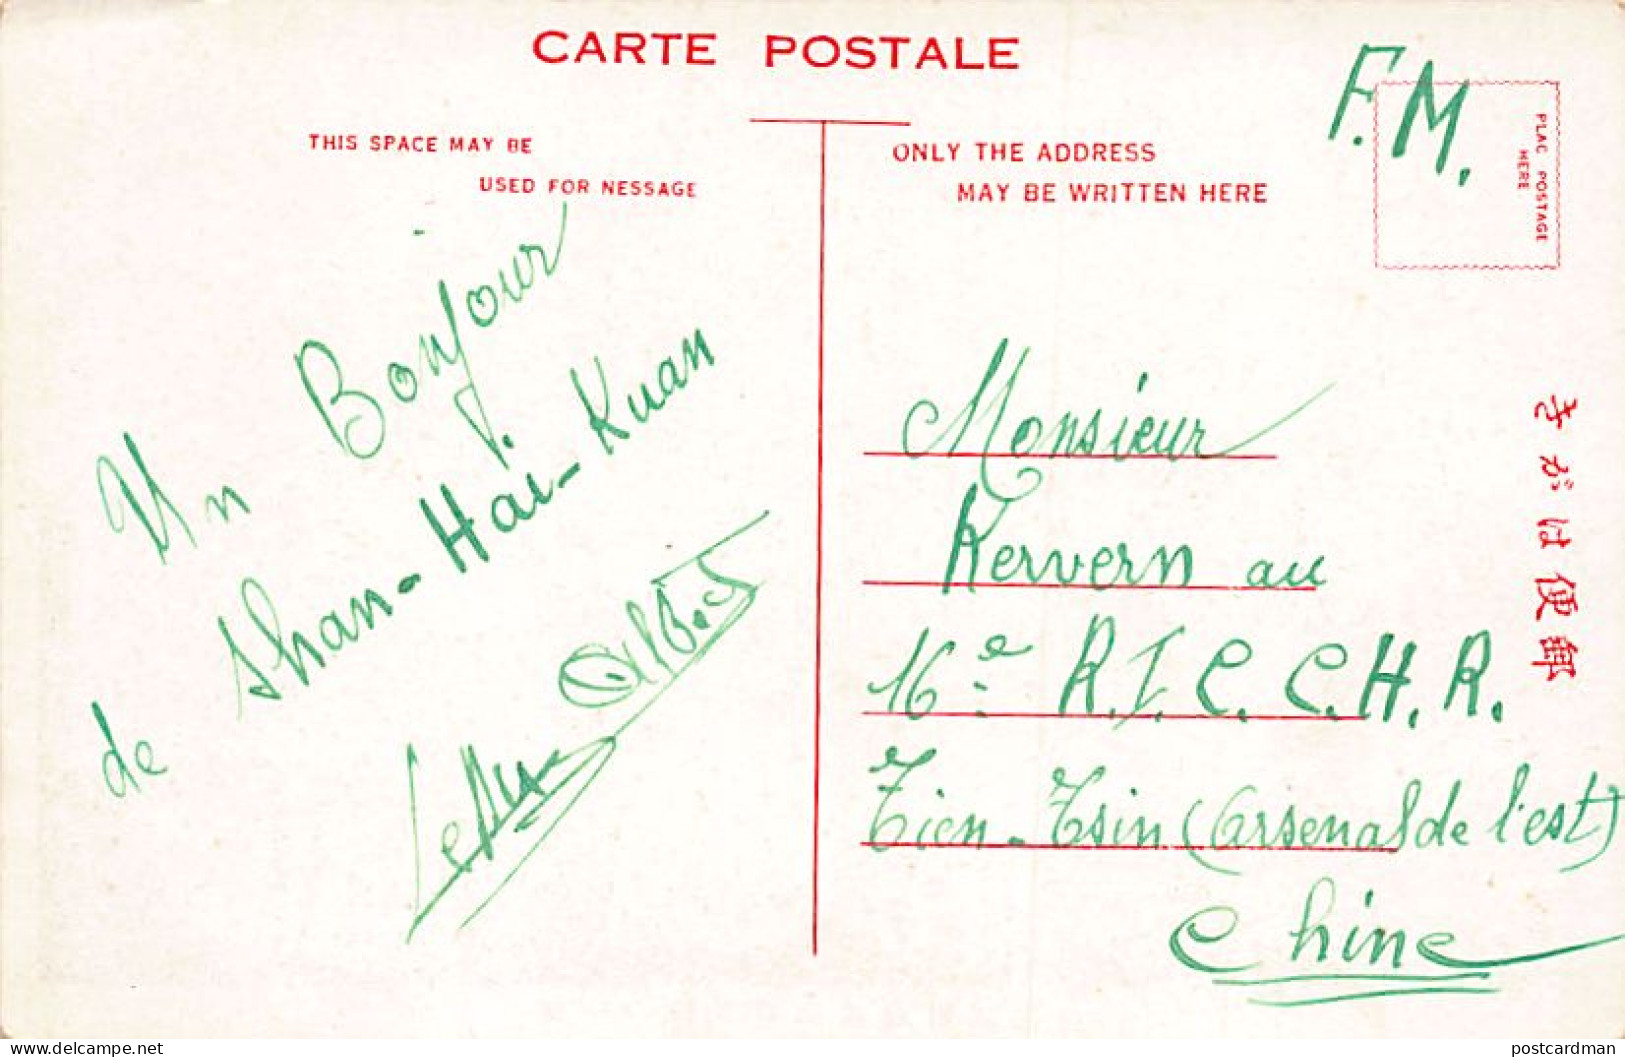 CARTE POSTALE
THIS SPACE MAY BE
USED FOR NESSAGE
ONLY THE ADDRESS
MAY BE WRITTEN HERE
F.M.
PLAC POSTAGE
HERE
Un Bonjour
de Shan-Haï-Kuan
Monsieur
Kervern au
16e R.I.C. C.H.R.
Tien-Tsin (Arsenal de l'est)
Chine
きがは便郵
www.delcampe.net
postcardman